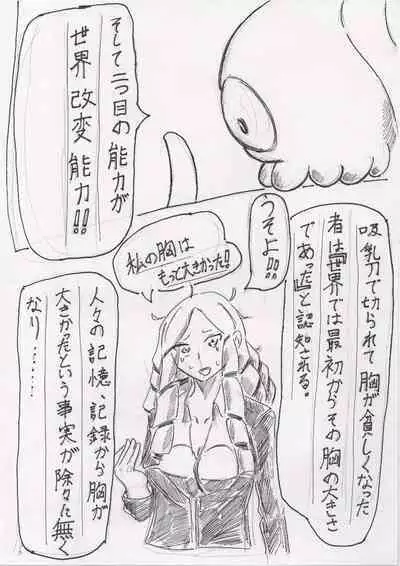 そして二つ目の能力が
世界改変
能力!!
吸乳刀で切られて胸が貧しくなった
者は『世界では最初からその胸の大きさ
であった』と認知される。
うそよ!!
私の胸は
もって大きかった!!
人々の記憶、記録から胸が
大きかったという事実が除々に無く
なり……